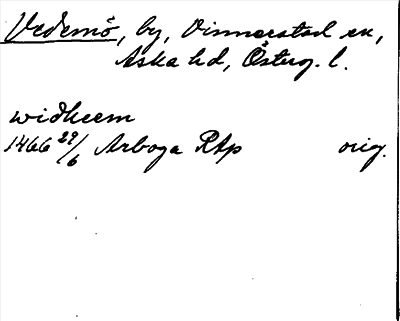 Vedemö, by, Vinnerstad sn,
Aska hd, Österg. l.
widheem
1466 29/6 Arboga RAp orig.